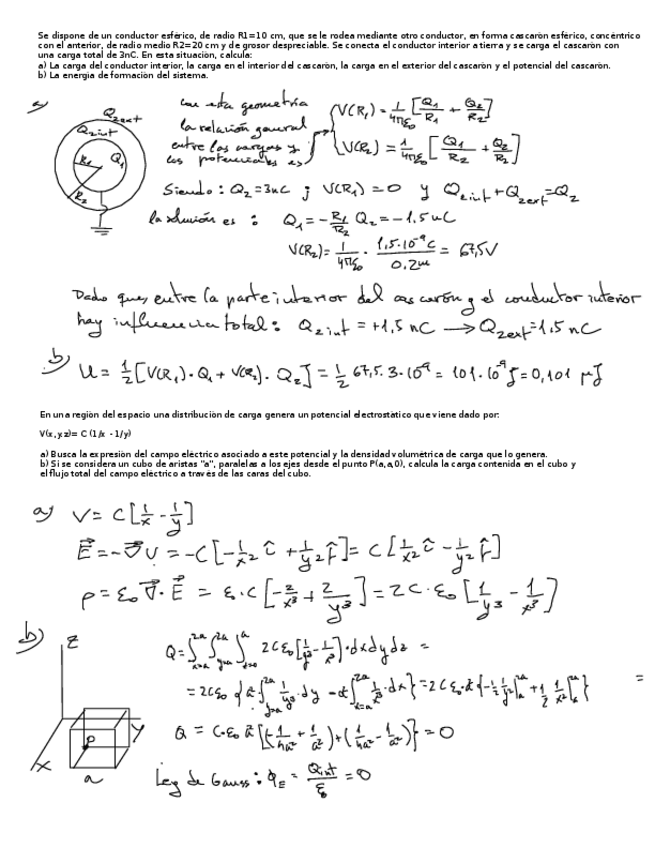 Se dispone de un conductor esférico, de radio R1=10 cm, que se le rodea mediante otro conductor, en forma cascarón esférico, concéntrico
con el anterior, de radio medio R2=20 cm y de grosor despreciable. Se conecta el conductor interior a tierra y se carga el cascarón con
una carga total de 3nC. En esta situación, calcula:
a) La carga del conductor interior, la carga en el interior del cascarón, la carga en el exterior del cascarón y el potencial del cascarón.
b) La energía de formación del sistema.
a)
Q2ext
Q2int
R1 Q1
R2
con esta geometría
la relación general
entre las cargas y
los potenciales es
V(R1) = 1/4πε0 [Q1/R1 + Q2/R2]
V(R2) = 1/4πε0 [Q1/R2 + Q2/R2]
Siendo: Q2=3nC ; V(R1)=0 y Q2int+Q2ext=Q2
la solución es : Q1 = -R1/R2 Q2 = -1,5 nC
V(R2) = 1/4πε0 · 1,5·10⁻⁹C/0,2m = 67,5V
Dado que, entre la parte interior del cascarón y el conductor interior
hay influencia total: Q2int = +1,5 nC → Q2ext=1,5 nC
b) U = 1/2 [V(R1)·Q1 + V(R2)·Q2] = 1/2 67,5·3·10⁻⁹ = 101·10⁻⁹J = 0,101 μJ
En una región del espacio una distribución de carga genera un potencial electrostático que viene dado por:
V(x,y,z)= C (1/x - 1/y)
a) Busca la expresión del campo eléctrico asociado a este potencial y la densidad volumétrica de carga que lo genera.
b) Si se considera un cubo de aristas "a", paralelas a los ejes desde el punto P(a,a,0), calcula la carga contenida en el cubo y
el flujo total del campo eléctrico a través de las caras del cubo.
a) V = C[1/x - 1/y]
E⃗ = -∇⃗V = -C[-1/x² î + 1/y² ĵ] = C[1/x² î - 1/y² ĵ]
ρ = ε0 ∇⃗·E⃗ = ε0·C[-2/x³ + 2/y³] = 2C·ε0 [1/y³ - 1/x³]
b)
z
y
x
P
a
Q = ∫x=a 2a ∫y=a 2a ∫z=0 a 2Cε0[1/y³ - 1/x³]·dxdydz =
Ley de Gauss: φE = Qint/ε0 = 0